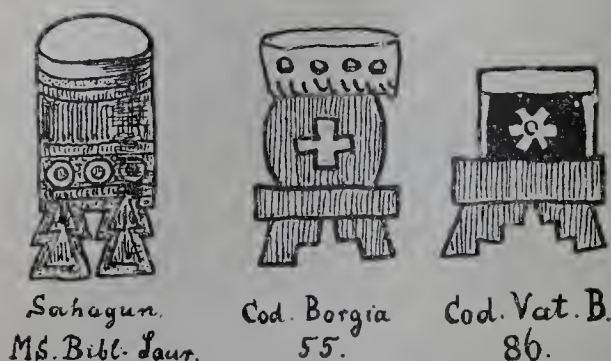 Sahagun.
MS. Bibl. Laur.
Cod. Borgia
55.
Cod. Vat. B.
86.